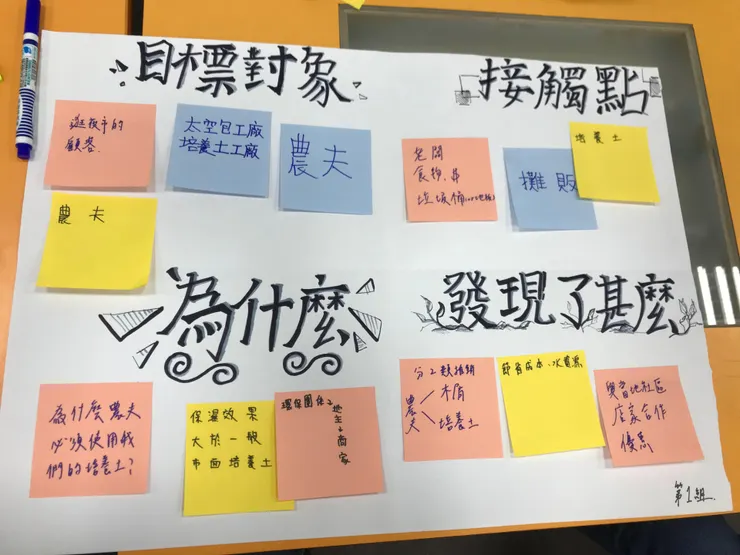 目標對象
逛夜市的
顧客
太空包工廠
培養土工廠
農夫
農夫
接觸點
食物、
攤販
培養土
為什麼
為什麼農夫
必須使用我
們的培養土?
保濕效果
大於一般
市面培養土
環保團体→地主→商家
發現了甚麼
分2類推銷
農夫
木屑
培養土
節省成本、水費票
與當地社區
店家合作
優惠
第1組